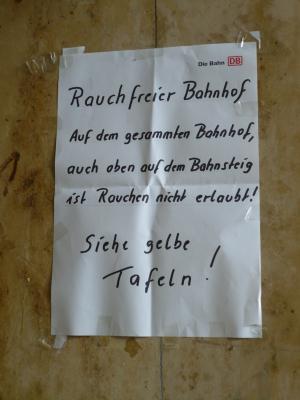 Die Bahn DB
Rauchfreier Bahnhof
Auf dem gesammten Bahnhof,
auch oben auf dem Bahnsteig
ist Rauchen nicht erlaubt!
Siehe gelbe
Tafeln!